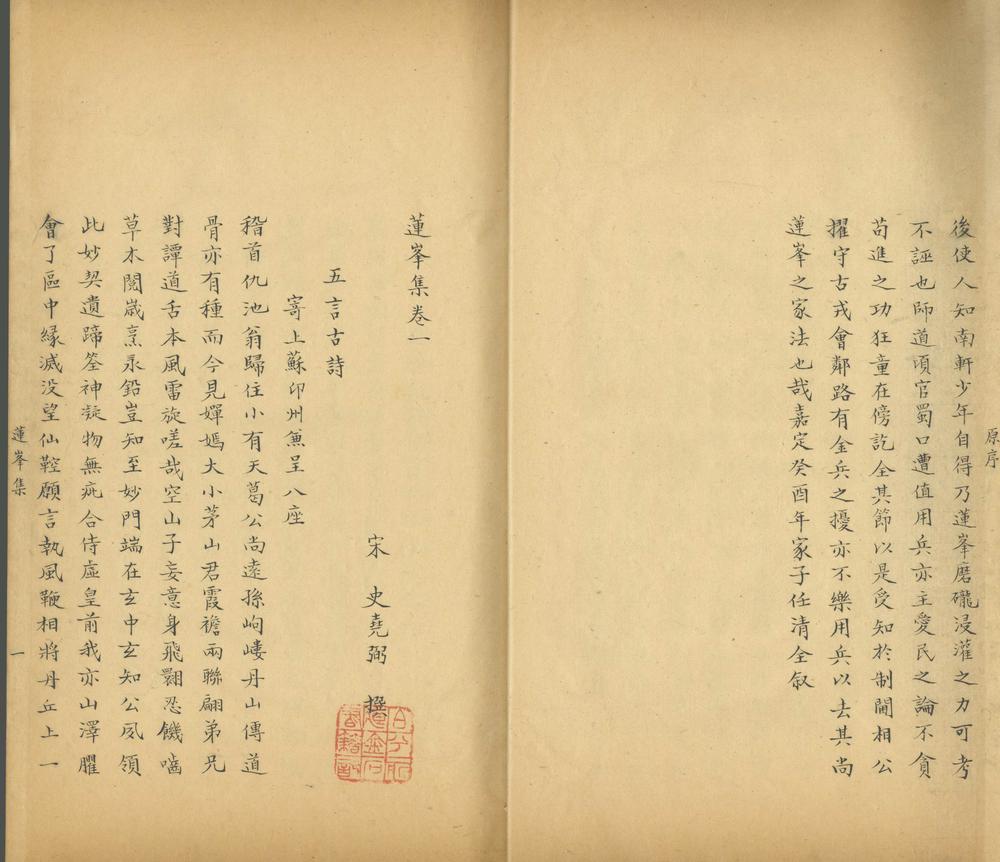 原序
後使人知南軒少年自得乃蓮峯磨礲浸灌之力可考
不誣也師道頃官蜀口遭值用兵亦主愛民之論不貪
苟進之功狂童在傍訖全其節以是受知於制閫相公
擢守古戎會鄰路有金兵之擾亦不樂用兵以去其尚
蓮峯之家法也哉嘉定癸酉年家子任清全叙
蓮峯集卷一
宋 史堯弼 撰
五言古詩
寄上蘇卭州兼呈八座
稽首仇池翁歸住小有天葛公尚遠孫岣嶁丹山傳道
骨亦有種而今見嬋嫣大小茅山君霞襜兩聯翩弟兄
對譚道舌本風雷旋嗟哉空山子妄意身飛翾忍饑嚙
草木閱嵗烹汞鉛豈知至妙門端在玄中玄知公夙領
此妙契遺蹄筌神凝物無疵合侍虛皇前我亦山澤臞
會了區中緣滅没望仙鞚願言執風鞭相將丹丘上一
蓮峯集
一